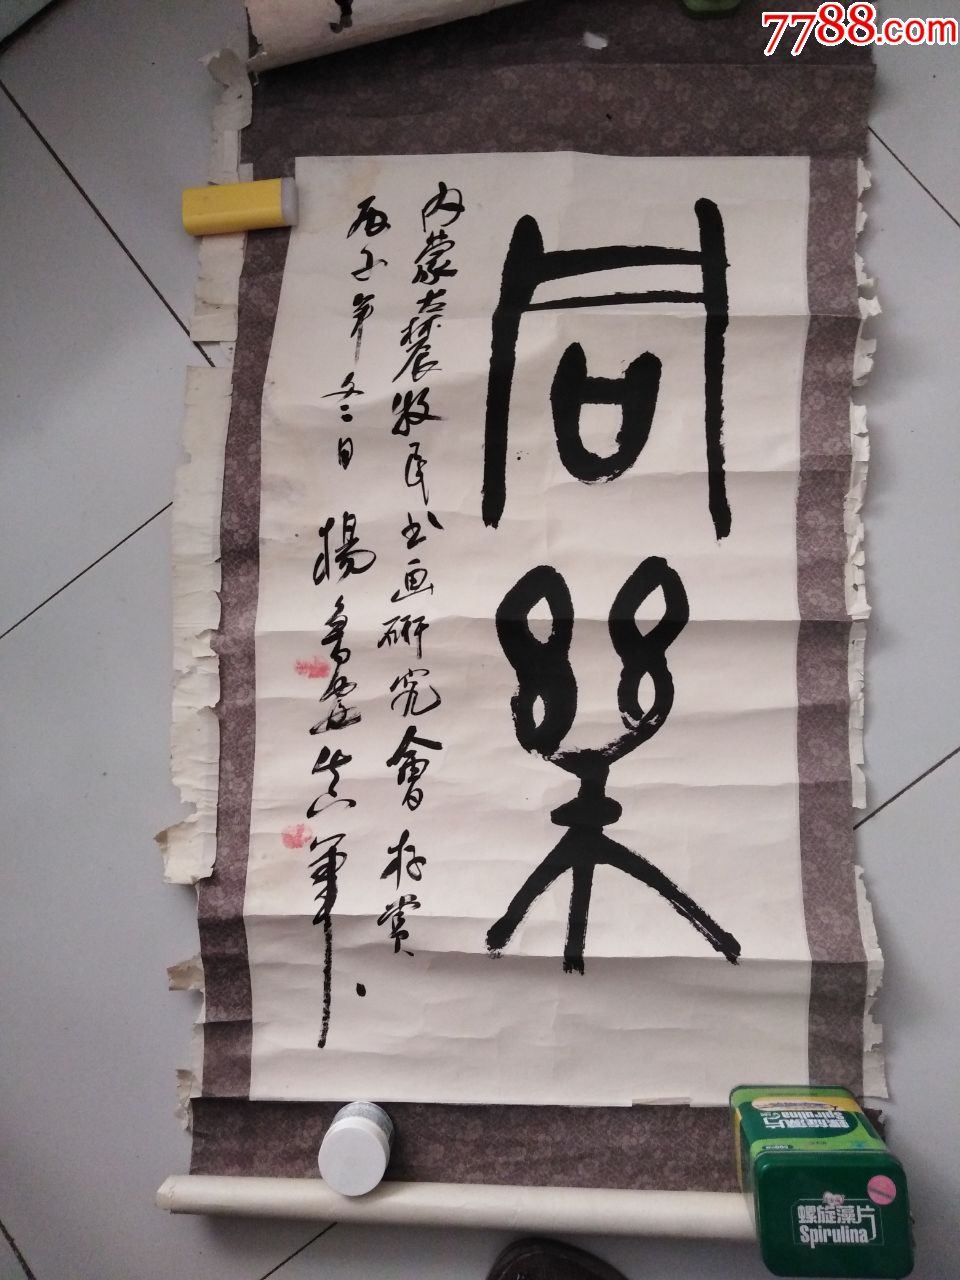 7788.com
同樂
内蒙古農牧民书画研究會存賞
丙子年冬日 楊魯安
螺旋藻片
Spirulina
螺旋藻片
Spirulina